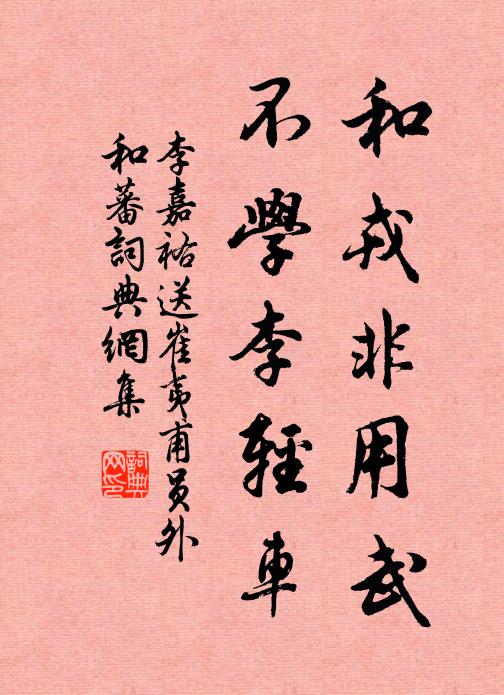 和戎非用武
不學李輕車
李嘉祐送崔夷甫員外
和蕃詞典網集
詞典網印